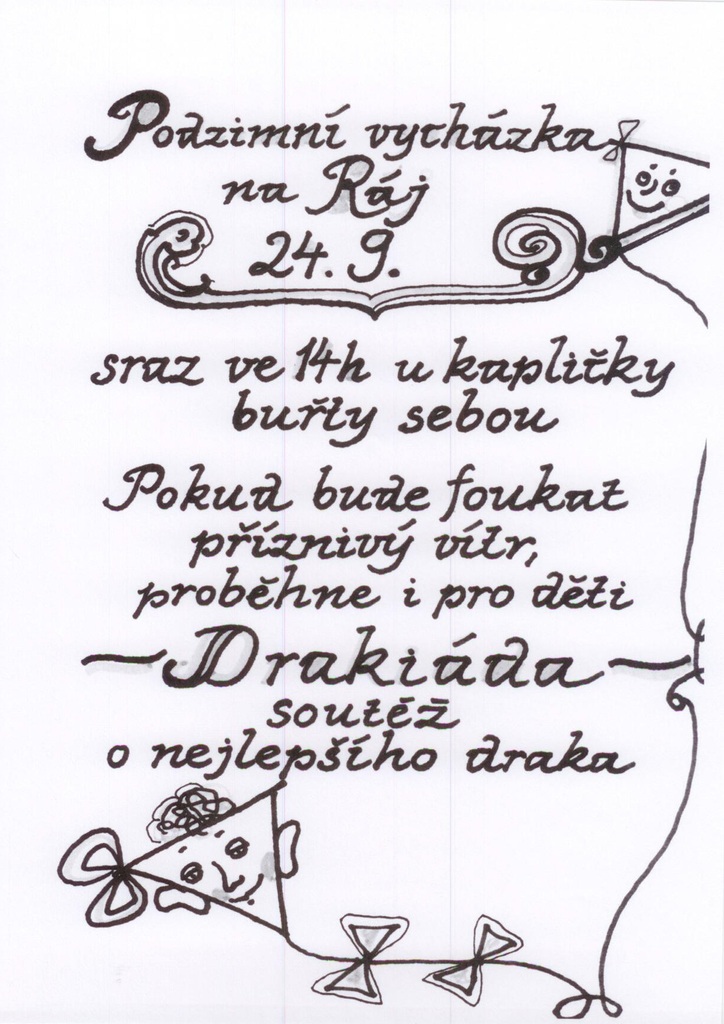 Podzimní vycházka
na Ráj
24. 9.
sraz ve 14h u kapličky
buřty sebou
Pokud bude foukat
příznivý vítr,
proběhne i pro děti
— Drakiáda —
soutěž
o nejlepšího draka